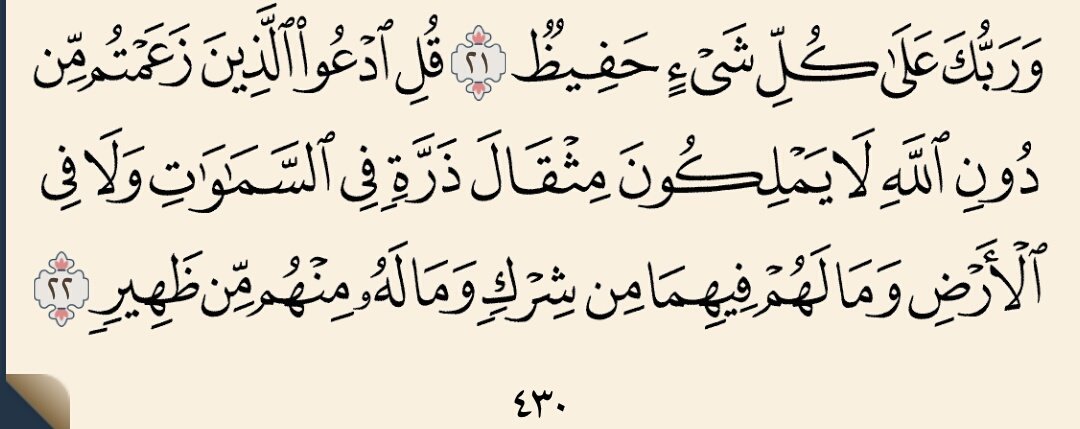 وَرَبُّكَ عَلَىٰ كُلِّ شَىْءٍ حَفِيظٌ ٢١ قُلِ ٱدْعُوا۟ ٱلَّذِينَ زَعَمْتُم مِّن
دُونِ ٱللَّهِ لَا يَمْلِكُونَ مِثْقَالَ ذَرَّةٍ فِى ٱلسَّمَـٰوَٰتِ وَلَا فِى
ٱلْأَرْضِ وَمَا لَهُمْ فِيهِمَا مِن شِرْكٍ وَمَا لَهُۥ مِنْهُم مِّن ظَهِيرٍ ٢٢
٤٣٠